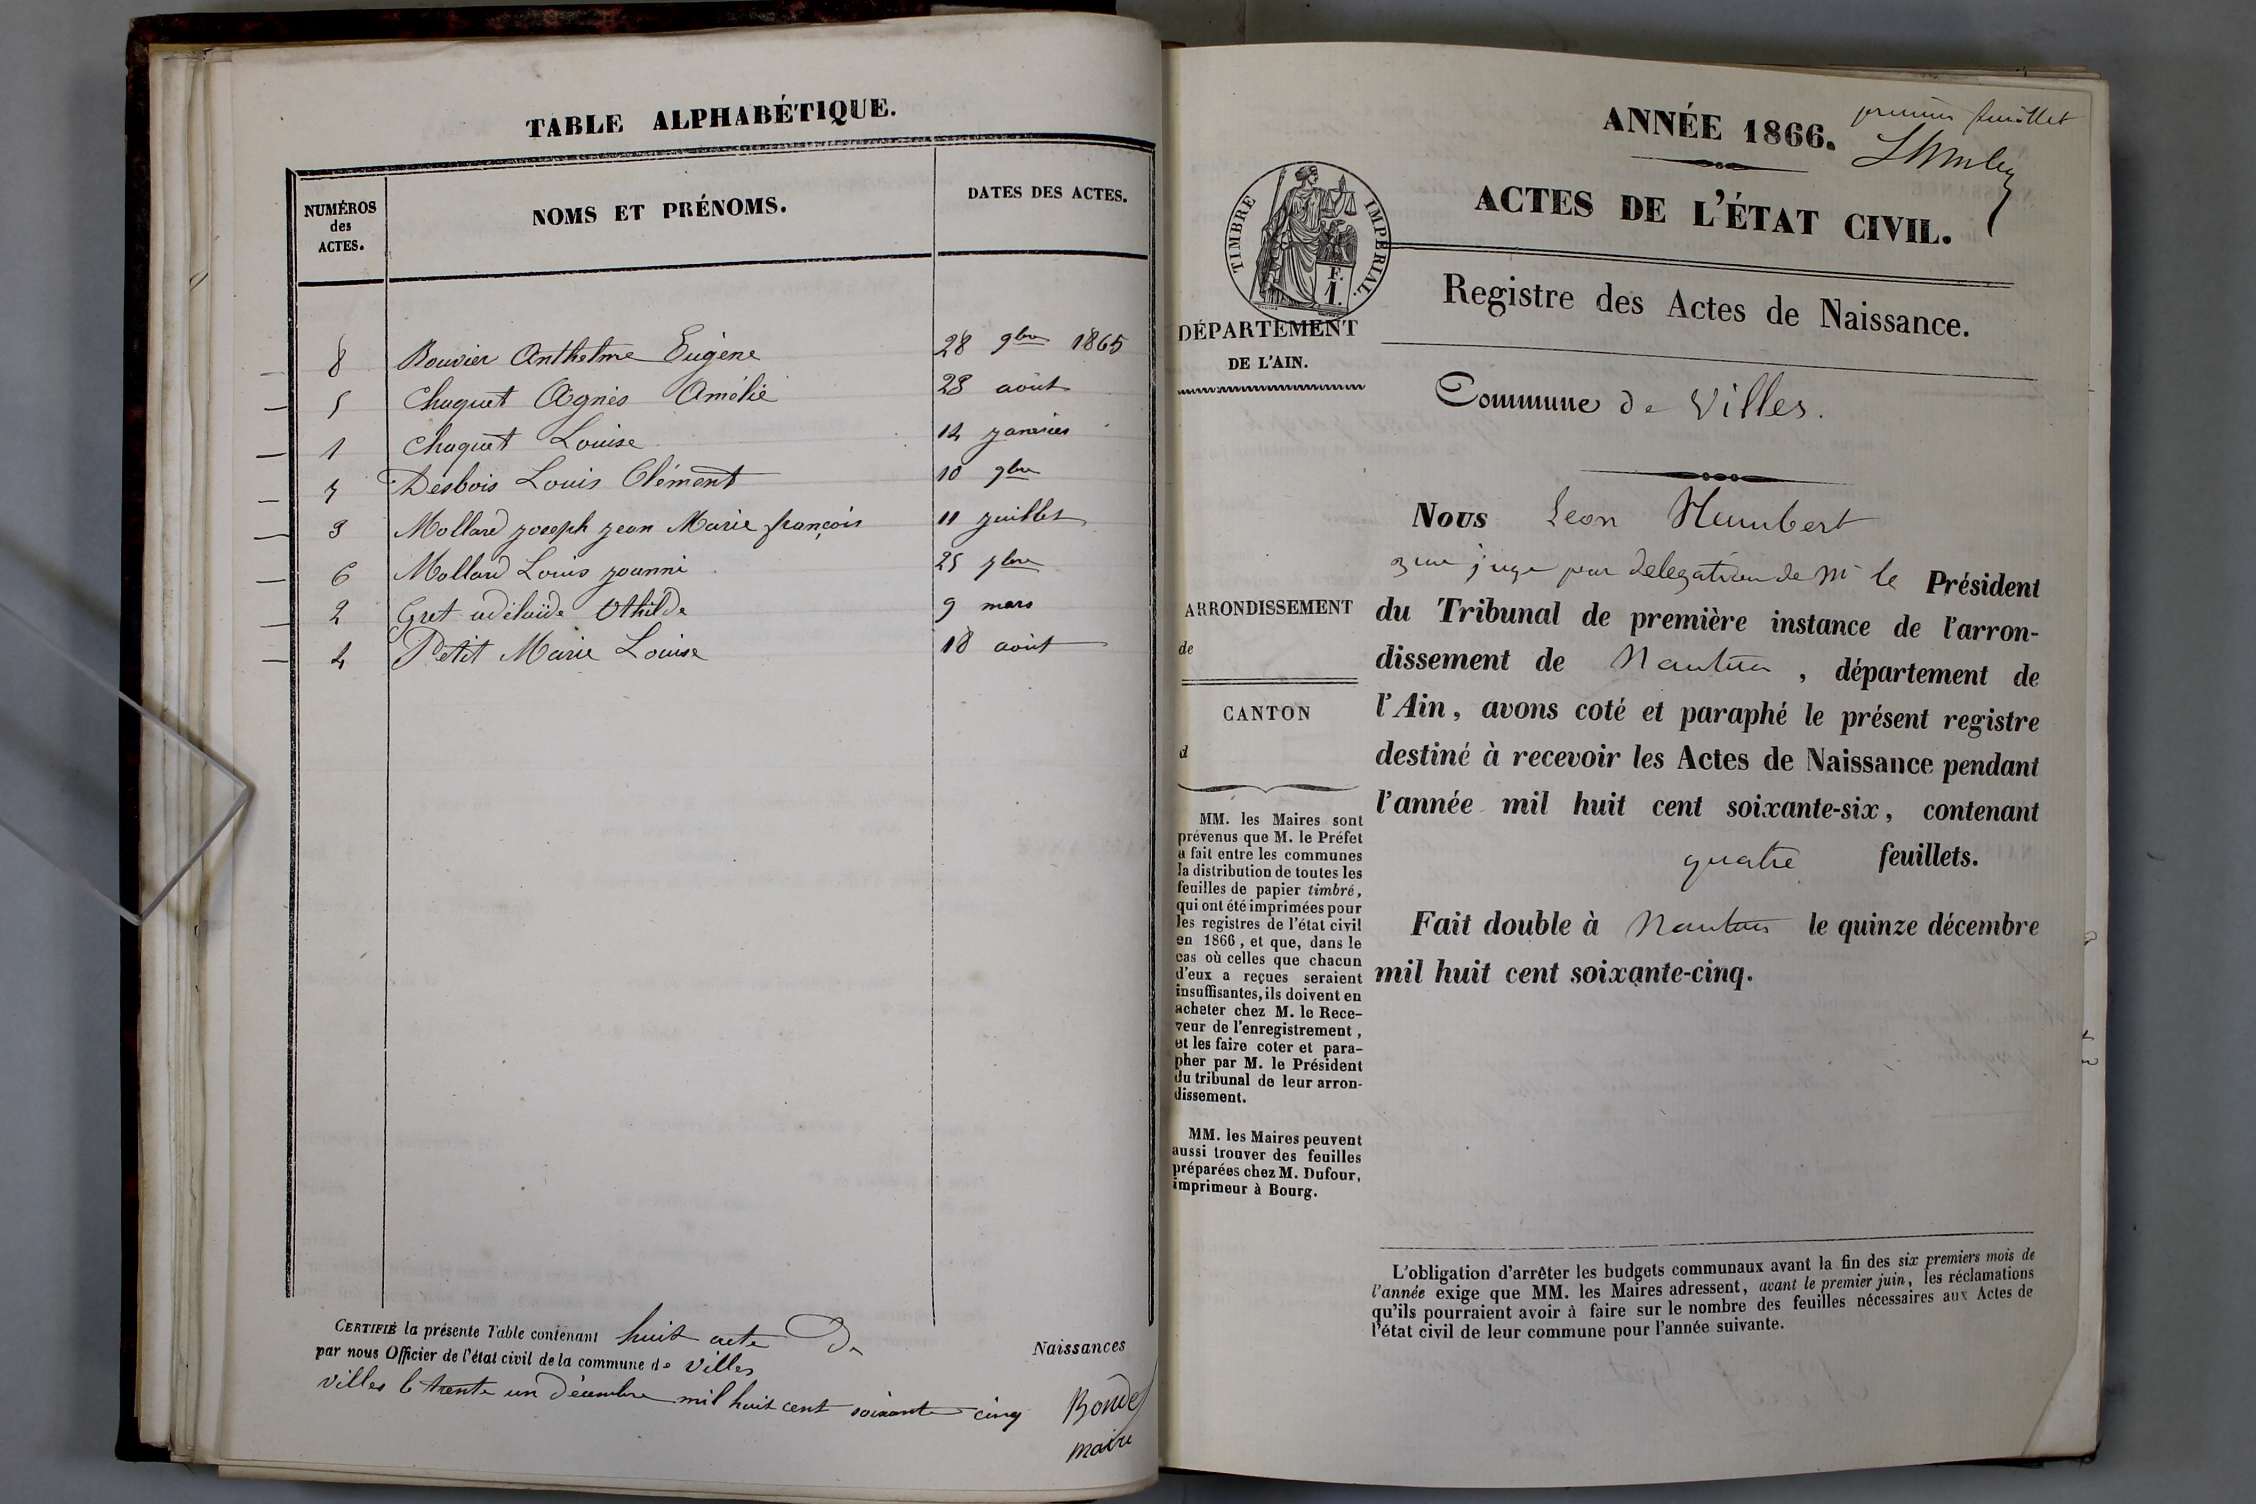 TABLE ALPHABÉTIQUE.
NUMÉROS des ACTES. NOMS ET PRÉNOMS. DATES DES ACTES.
8 Bouvier Anthelme Eugène 28 9bre 1865
5 Chaquet Agnès Amélie 28 août
1 Chaquet Louise 14 janvier
7 Desbois Louis Clément 10 9bre
3 Mollard joseph jean Marie françois 11 juillet
6 Mollard Louis joanni 25 7bre
2 Gret adélaïde Othilde 9 mars
4 Petit Marie Louise 18 août
CERTIFIÉ la présente Table contenant huit acte de Naissances
par nous Officier de l'état civil de la commune de Villes
Villes le trente un décembre mil huit cent soixante cinq
maire
premier feuillet
ANNÉE 1866.
ACTES DE L'ÉTAT CIVIL.
TIMBRE IMPÉRIAL.
F.
1.
Registre des Actes de Naissance.
DÉPARTEMENT
DE L'AIN.
Commune de Villes.
Nous Leon Humbert
juge par delegation de Mr le Président
du Tribunal de première instance de l'arron-
dissement de Nantua, département de
l'Ain, avons coté et paraphé le présent registre
destiné à recevoir les Actes de Naissance pendant
l'année mil huit cent soixante-six, contenant
quatre feuillets.
Fait double à Nantua le quinze décembre
mil huit cent soixante-cinq.
ARRONDISSEMENT
de
CANTON
d
MM. les Maires sont
prévenus que M. le Préfet
a fait entre les communes
la distribution de toutes les
feuilles de papier timbré,
qui ont été imprimées pour
les registres de l'état civil
en 1866, et que, dans le
cas où celles que chacun
d'eux a reçues seraient
insuffisantes, ils doivent en
acheter chez M. le Rece-
veur de l'enregistrement,
et les faire coter et para-
pher par M. le Président
du tribunal de leur arron-
dissement.
MM. les Maires peuvent
aussi trouver des feuilles
préparées chez M. Dufour,
imprimeur à Bourg.
L'obligation d'arrêter les budgets communaux avant la fin des six premiers mois de
l'année exige que MM. les Maires adressent, avant le premier juin, les réclamations
qu'ils pourraient avoir à faire sur le nombre des feuilles nécessaires aux Actes de
l'état civil de leur commune pour l'année suivante.